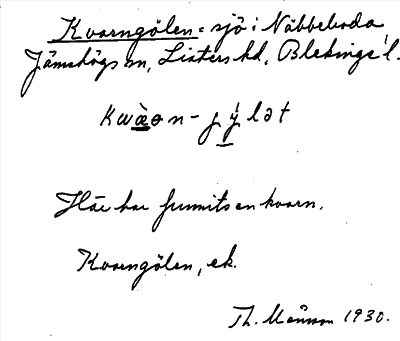 Kvarngölen = sjö i Näbbeboda
Jämshögs sn, Listers hd, Blekinge l.
Här har funnits en kvarn.
Kvarngölen, ek.
Th. Månsson 1930.